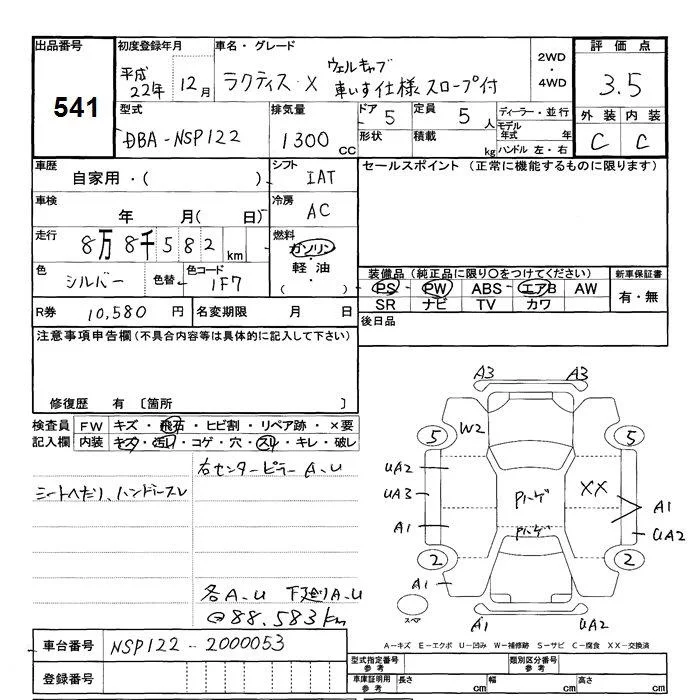 出品番号 初度登録年月 車名・グレード 評価点
541
平成22年 12月 ラクティス・X ウェルキャブ 車いす仕様 スロープ付 2WD ・ 4WD 3.5
型式 排気量 ドア 5 定員 5 人 ディーラー・並行 外装 内装
DBA-NSP122 1300 CC 形状 積載 kg モデル年式 年 ハンドル 左・右 C C
車歴 シフト セールスポイント (正常に機能するものに限ります)
自家用・( ) IAT
車検 年 月( 日) 冷房 AC
走行 8万8千582 km 燃料 ガソリン・軽油・( )
色 シルバー 色替 色コード 1F7
装備品(純正品に限り○をつけてください) 新車保証書
PS - PW - ABS - エアB AW 有・無
SR ナビ TV カワ
R券 10,580 円 名変期限 月 日 後日品
注意事項申告欄(不具合内容等は具体的に記入して下さい)
修復歴 有 〔箇所 〕
検査員 FW キズ・飛石・ヒビ割・リペア跡・×要
記入欄 内装 キズ・汚れ・コゲ・穴・スレ・キレ・破レ
右センターピラーA.U
シートヘタリ、ハンドルスレ
各A.U 下廻りA.U
@88.583km
A3 A3
5 W2 5
UA2
UA3 Pハゲ XX A1
A1 Pハゲ UA2
2 2
A1
スペア A1 UA2
車台番号 NSP122-2000053
A-キズ E-エクボ U-凹み W-補修跡 S-サビ C-腐食 XX-交換済
登録番号 型式指定番号 参考 類別区分番号 参考
車庫証明用 参考 長さ cm 幅 cm 高さ cm